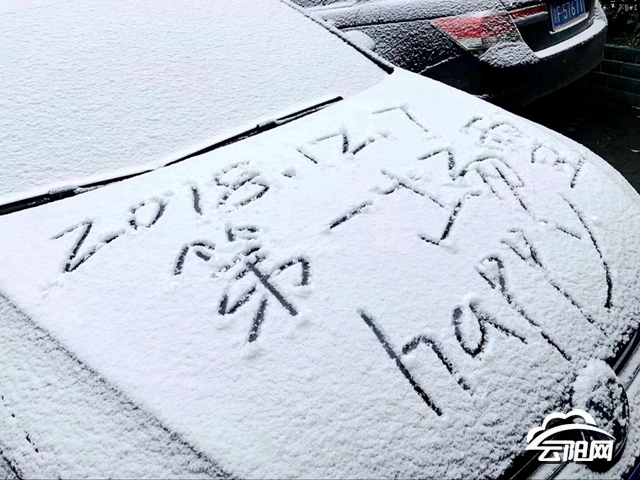 2018.12.7
第一场雪
happy
云阳网